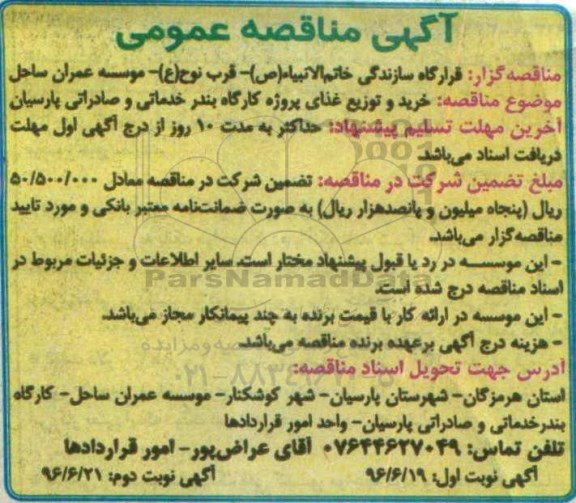 آگهی مناقصه عمومی
مناقصه‌گزار: قرارگاه سازندگی خاتم‌الانبیاء(ص)- قرب نوح(ع)- موسسه عمران ساحل
موضوع مناقصه: خرید و توزیع غذای پروژه کارگاه بندر خدماتی و صادراتی پارسیان
آخرین مهلت تسلیم پیشنهاد: حداکثر به مدت ۱۰ روز از درج آگهی اول مهلت
دریافت اسناد می‌باشد.
مبلغ تضمین شرکت در مناقصه: تضمین شرکت در مناقصه معادل ۵۰/۵۰۰/۰۰۰
ریال (پنجاه میلیون و پانصدهزار ریال) به صورت ضمانت‌نامه معتبر بانکی و مورد تایید
مناقصه‌گزار می‌باشد.
- این موسسه در رد یا قبول پیشنهاد مختار است. سایر اطلاعات و جزئیات مربوط در
اسناد مناقصه درج شده است.
- این موسسه در ارائه کار با قیمت برنده به چند پیمانکار مجاز می‌باشد.
- هزینه درج آگهی برعهده برنده مناقصه می‌باشد.
آدرس جهت تحویل اسناد مناقصه:
استان هرمزگان- شهرستان پارسیان- شهر کوشکنار- موسسه عمران ساحل- کارگاه
بندرخدماتی و صادراتی پارسیان- واحد امور قراردادها
تلفن تماس: ۰۷۶۴۴۶۲۷۰۴۹ آقای عراض‌پور- امور قراردادها
آگهی نوبت اول: ۹۶/۶/۱۹ آگهی نوبت دوم: ۹۶/۶/۲۱
ParsNamadData